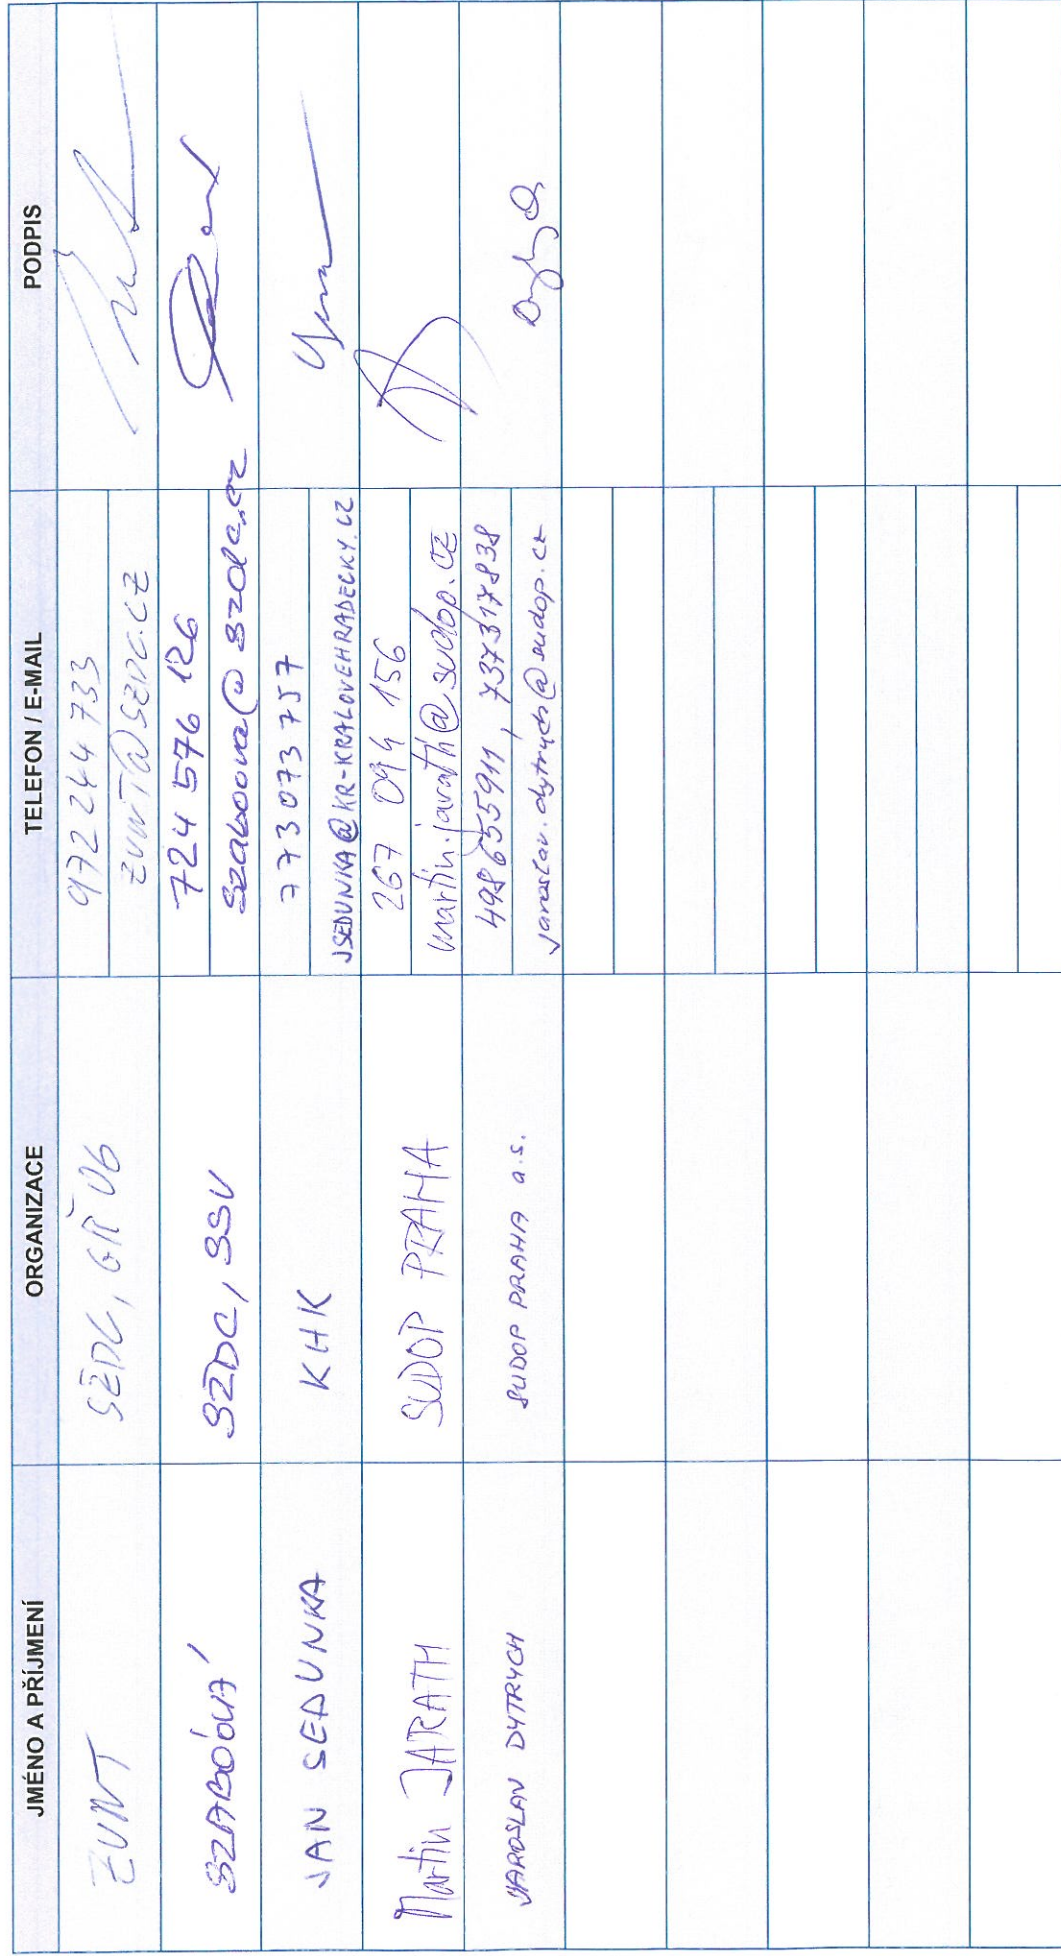 JMÉNO A PŘÍJMENÍ ORGANIZACE TELEFON / E-MAIL PODPIS
ZUNT SŽDC, GŘ O6 972 244 733
ZUNT@SZDC.CZ
SZABÓOVÁ SŽDC, SSV 724 576 126
szaboova@szdc.cz
JAN SEDUNKA KHK 773 073 757
JSEDUNKA@KR-KRALOVEHRADECKY.CZ
Martin JARATH SUDOP PRAHA 267 094 156
martin.jarath@sudop.cz
JAROSLAV DYTRYCH SUDOP PRAHA a.s. 498655911, 737317838
jaroslav.dytrych@sudop.cz